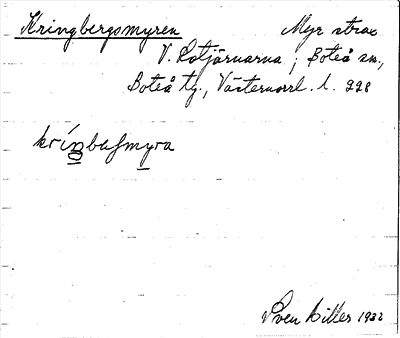 Kringbergsmyren Myr strax
V. Rotjärnarna; Boteå sn.,
Boteå tg., Västernorrl. l. 228
kríŋbaſmyra
Sven Killer 1932